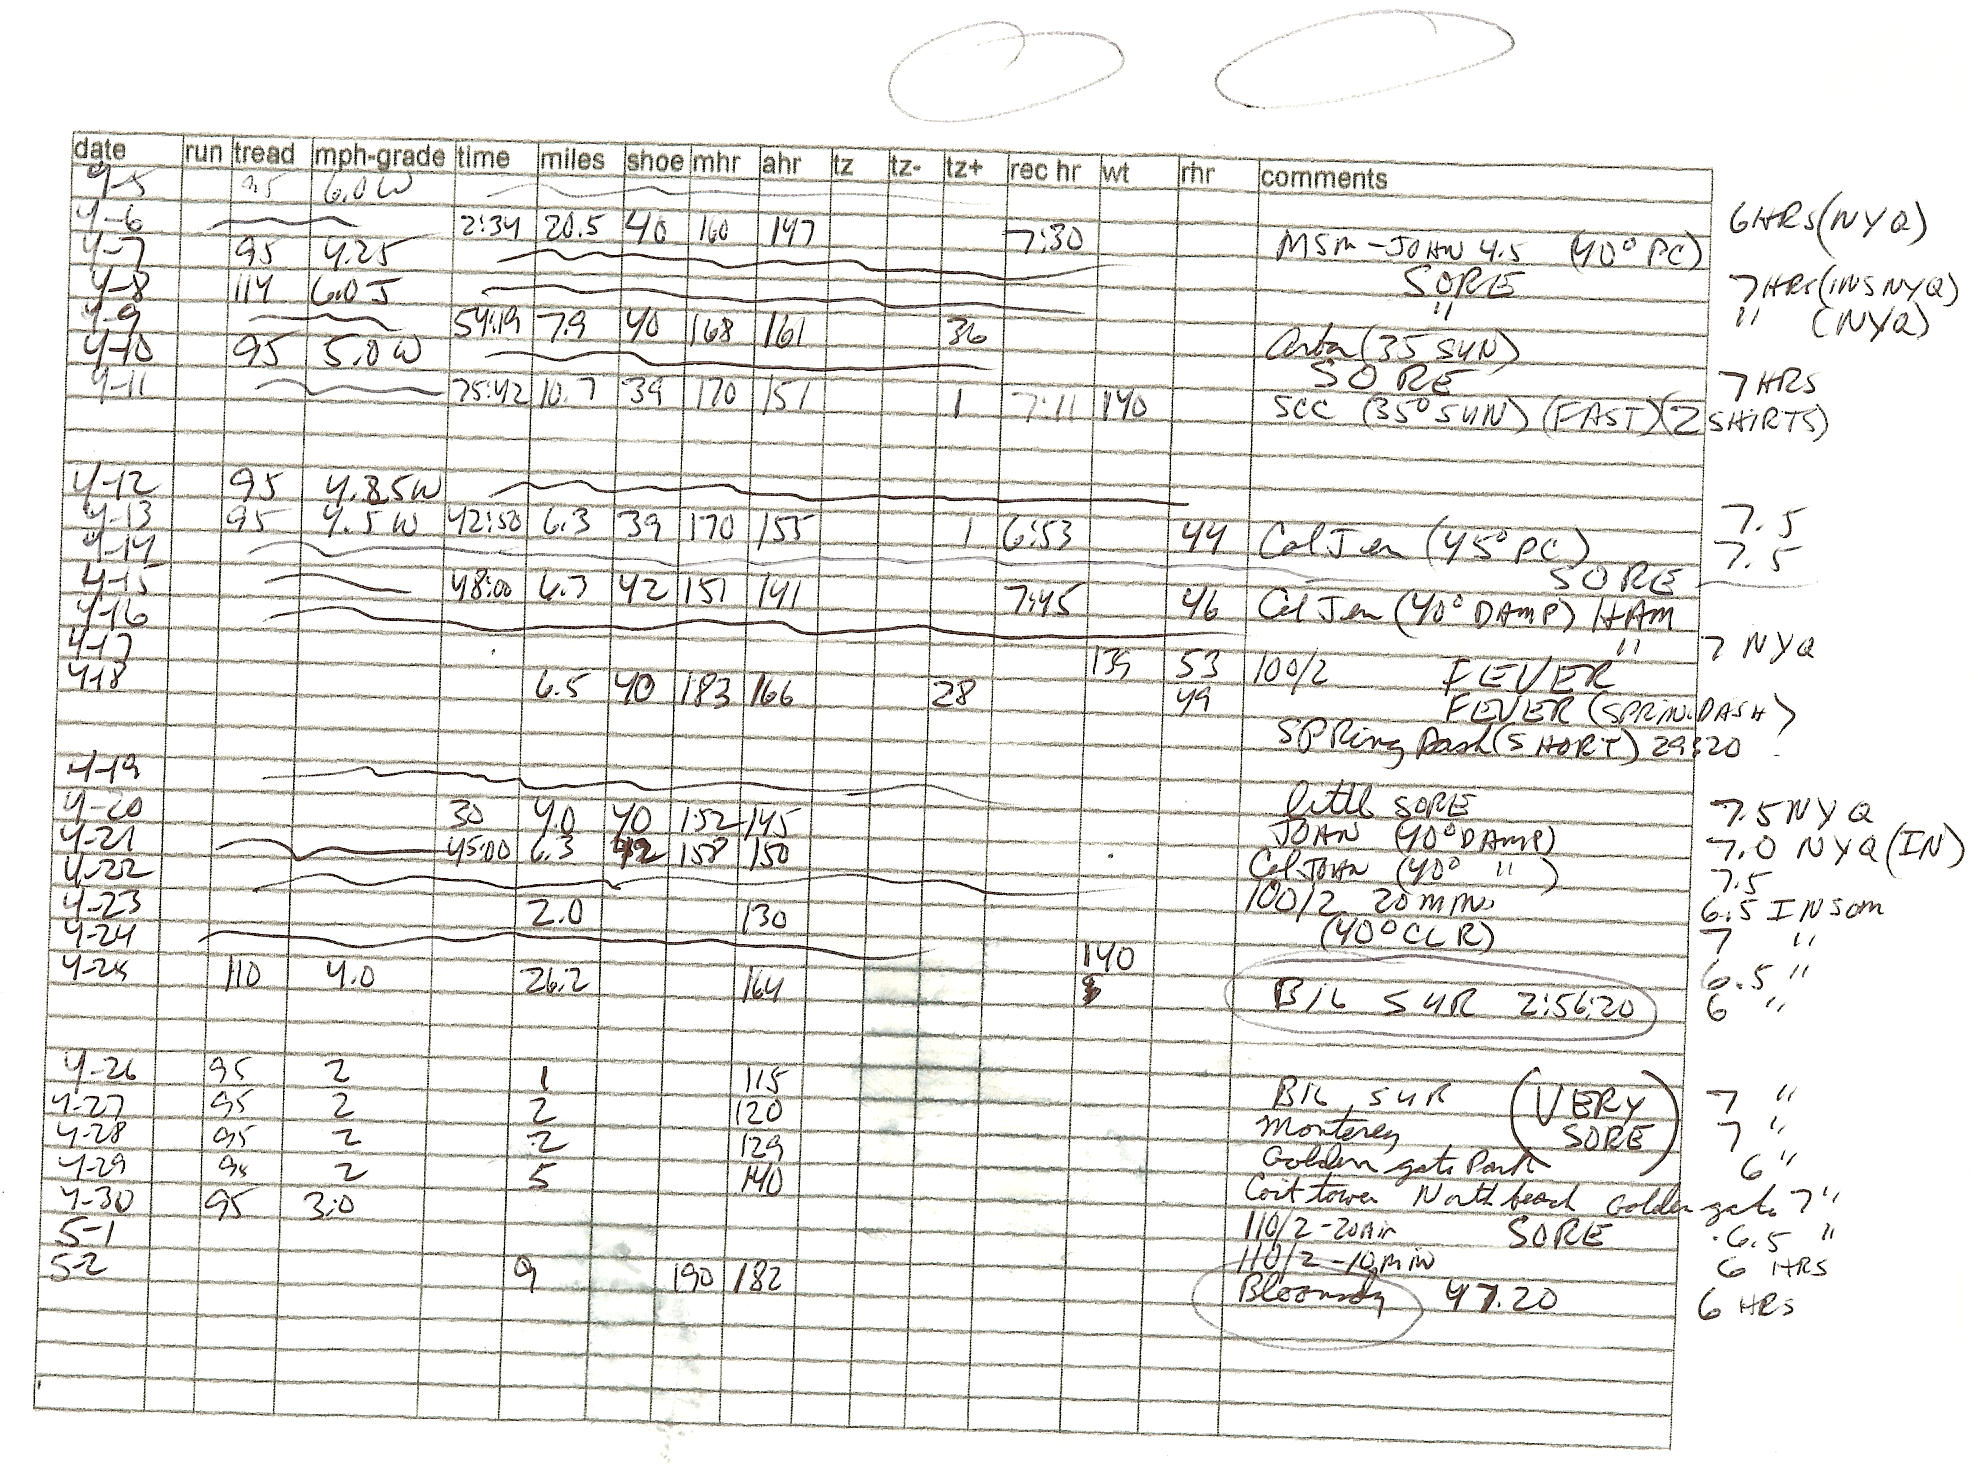 date run tread mph-grade time miles shoe mhr ahr tz tz- tz+ rec hr wt rhr comments
4-5 95 6.0W
4-6 2:34 20.5 40 160 147 7:30 MSM-JOHN 4.5 (40° PC) 6HRS(NYQ)
4-7 95 4.25 SORE 7HRS(INSNYQ)
4-8 114 6.0J " " (NYQ)
4-9 54:19 7.9 40 168 161 36 (35 SUN)
4-10 95 5.0W SORE 7HRS
4-11 75:42 10.7 39 170 151 1 7:11 140 SCC (35° SUN) (FAST)(2 SHIRTS)
4-12 95 4.85W 7.5
4-13 95 4.5W 42:50 6.3 39 170 155 1 6:53 44 Cal Jen (45° PC) 7.5
4-14 SORE
4-15 48:00 6.3 42 151 141 7:45 46 Cal Jen (40° DAMP) HAM
4-16 " 7 NYQ
4-17 139 53 100/2 FEVER
4-18 6.5 40 183 166 28 49 FEVER (SPRIN.DASH)
SPRing Dash (SHORT) 29:20
4-19 little SORE 7.5 NYQ
4-20 30 4.0 40 152 145 JOHN (40° DAMP) 7.0 NYQ(IN)
4-21 45:00 6.3 42 158 150 Cal JOHN (40° ") 7.5
4-22 100/2 20 min 6.5 INSom
4-23 2.0 130 (40° CLR) 7 "
4-24 140 6.5 "
4-25 110 4.0 26.2 164 BIG SUR 2:56:20 6 "
4-26 95 2 1 115 BIG SUR (VERY 7 "
4-27 95 2 2 120 Monterey SORE) 7 "
4-28 95 2 2 129 Golden gate Park 6 "
4-29 95 2 5 140 Coit tower North beach Golden gate 7 "
4-30 95 3.0 110/2-20min SORE 6.5 "
5-1 110/2-10min 6 HRS
5-2 9 190 182 Bloomsday 47.20 6 HRS